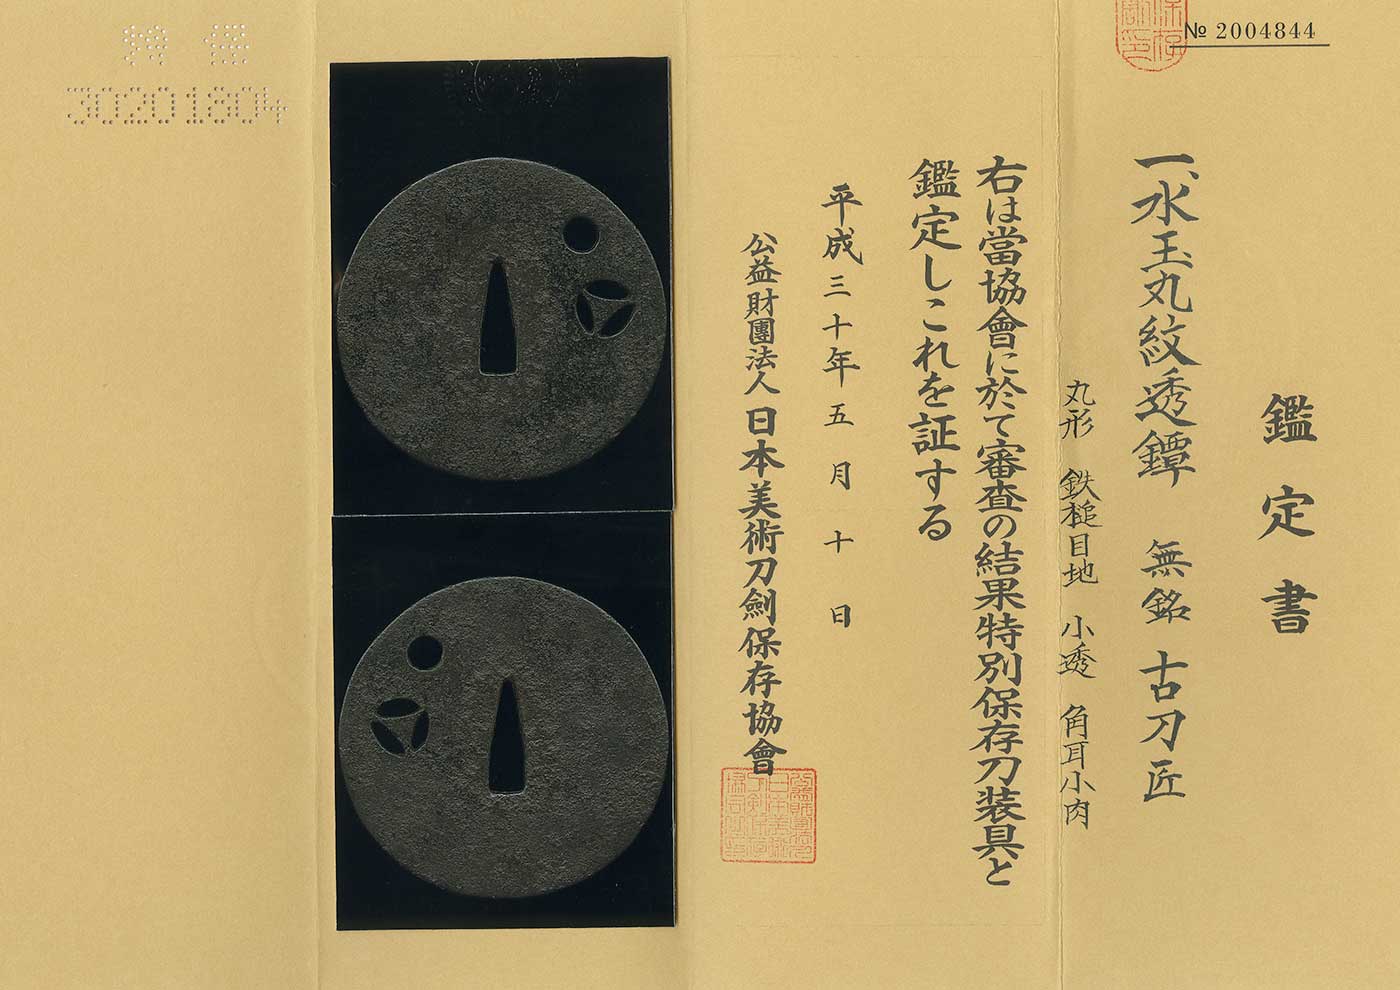 № 2004844
鑑定書
一、水玉丸紋透鐔 無銘 古刀匠
丸形 鉄槌目地 小透 角耳小肉
右は當協會に於て審査の結果特別保存刀装具と
鑑定しこれを証する
平成三十年五月十日
公益財團法人 日本美術刀劍保存協會
30201804